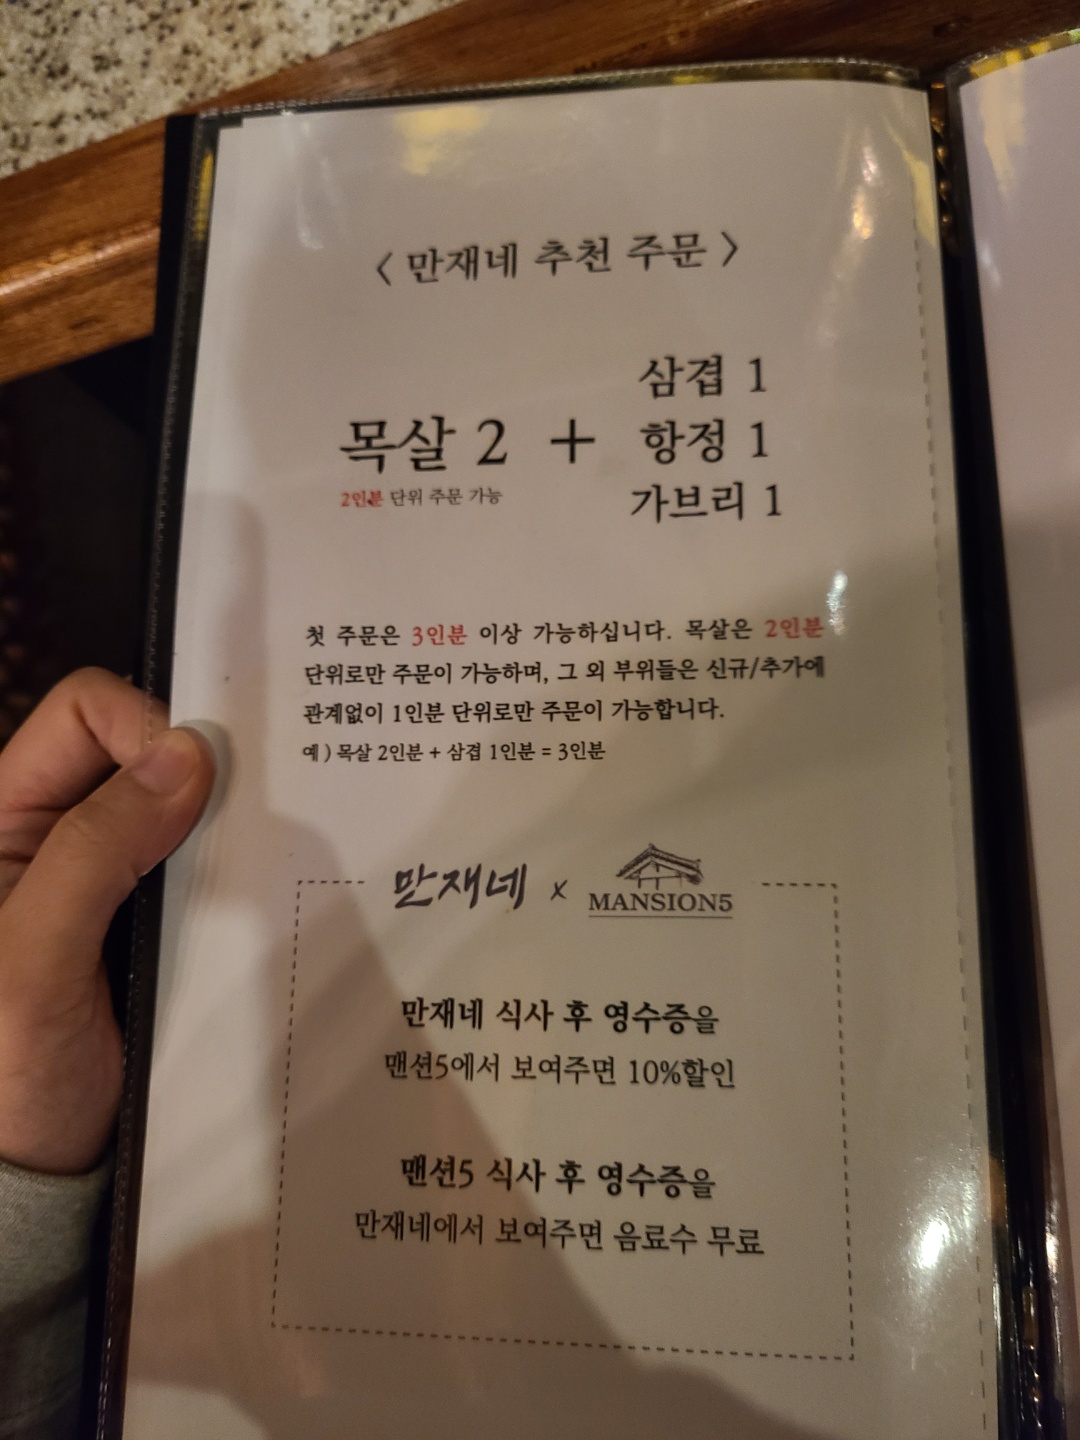 〈 만재네 추천 주문 〉
목살 2 + 삼겹 1
항정 1
가브리 1
2인분 단위 주문 가능
첫 주문은 3인분 이상 가능하십니다. 목살은 2인분
단위로만 주문이 가능하며, 그 외 부위들은 신규/추가에
관계없이 1인분 단위로만 주문이 가능합니다.
예 ) 목살 2인분 + 삼겹 1인분 = 3인분
만재네 x MANSION5
만재네 식사 후 영수증을
맨션5에서 보여주면 10%할인
맨션5 식사 후 영수증을
만재네에서 보여주면 음료수 무료